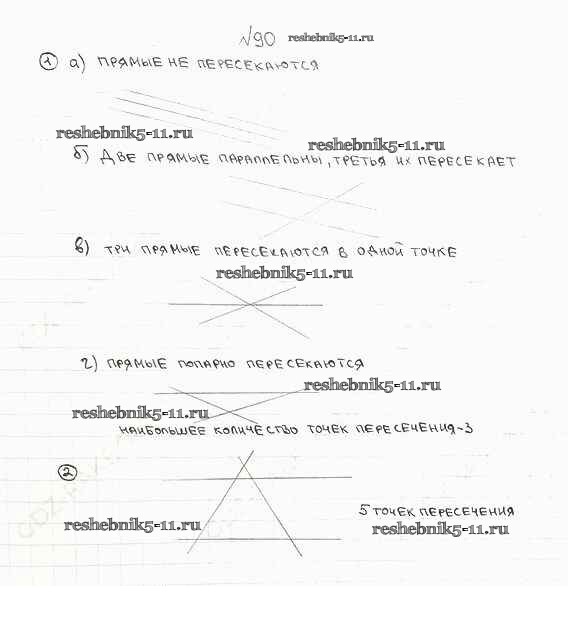 №90 reshebnik5-11.ru
1 а) ПРЯМЫЕ НЕ ПЕРЕСЕКАЮТСЯ
reshebnik5-11.ru
reshebnik5-11.ru
б) ДВЕ ПРЯМЫЕ ПАРАЛЛЕЛЬНЫ, ТРЕТЬЯ ИХ ПЕРЕСЕКАЕТ
в) ТРИ ПРЯМЫЕ ПЕРЕСЕКАЮТСЯ В ОДНОЙ ТОЧКЕ
reshebnik5-11.ru
г) ПРЯМЫЕ ПОПАРНО ПЕРЕСЕКАЮТСЯ
reshebnik5-11.ru
reshebnik5-11.ru
НАИБОЛЬШЕЕ КОЛИЧЕСТВО ТОЧЕК ПЕРЕСЕЧЕНИЯ-3
2
5 ТОЧЕК ПЕРЕСЕЧЕНИЯ
reshebnik5-11.ru
reshebnik5-11.ru